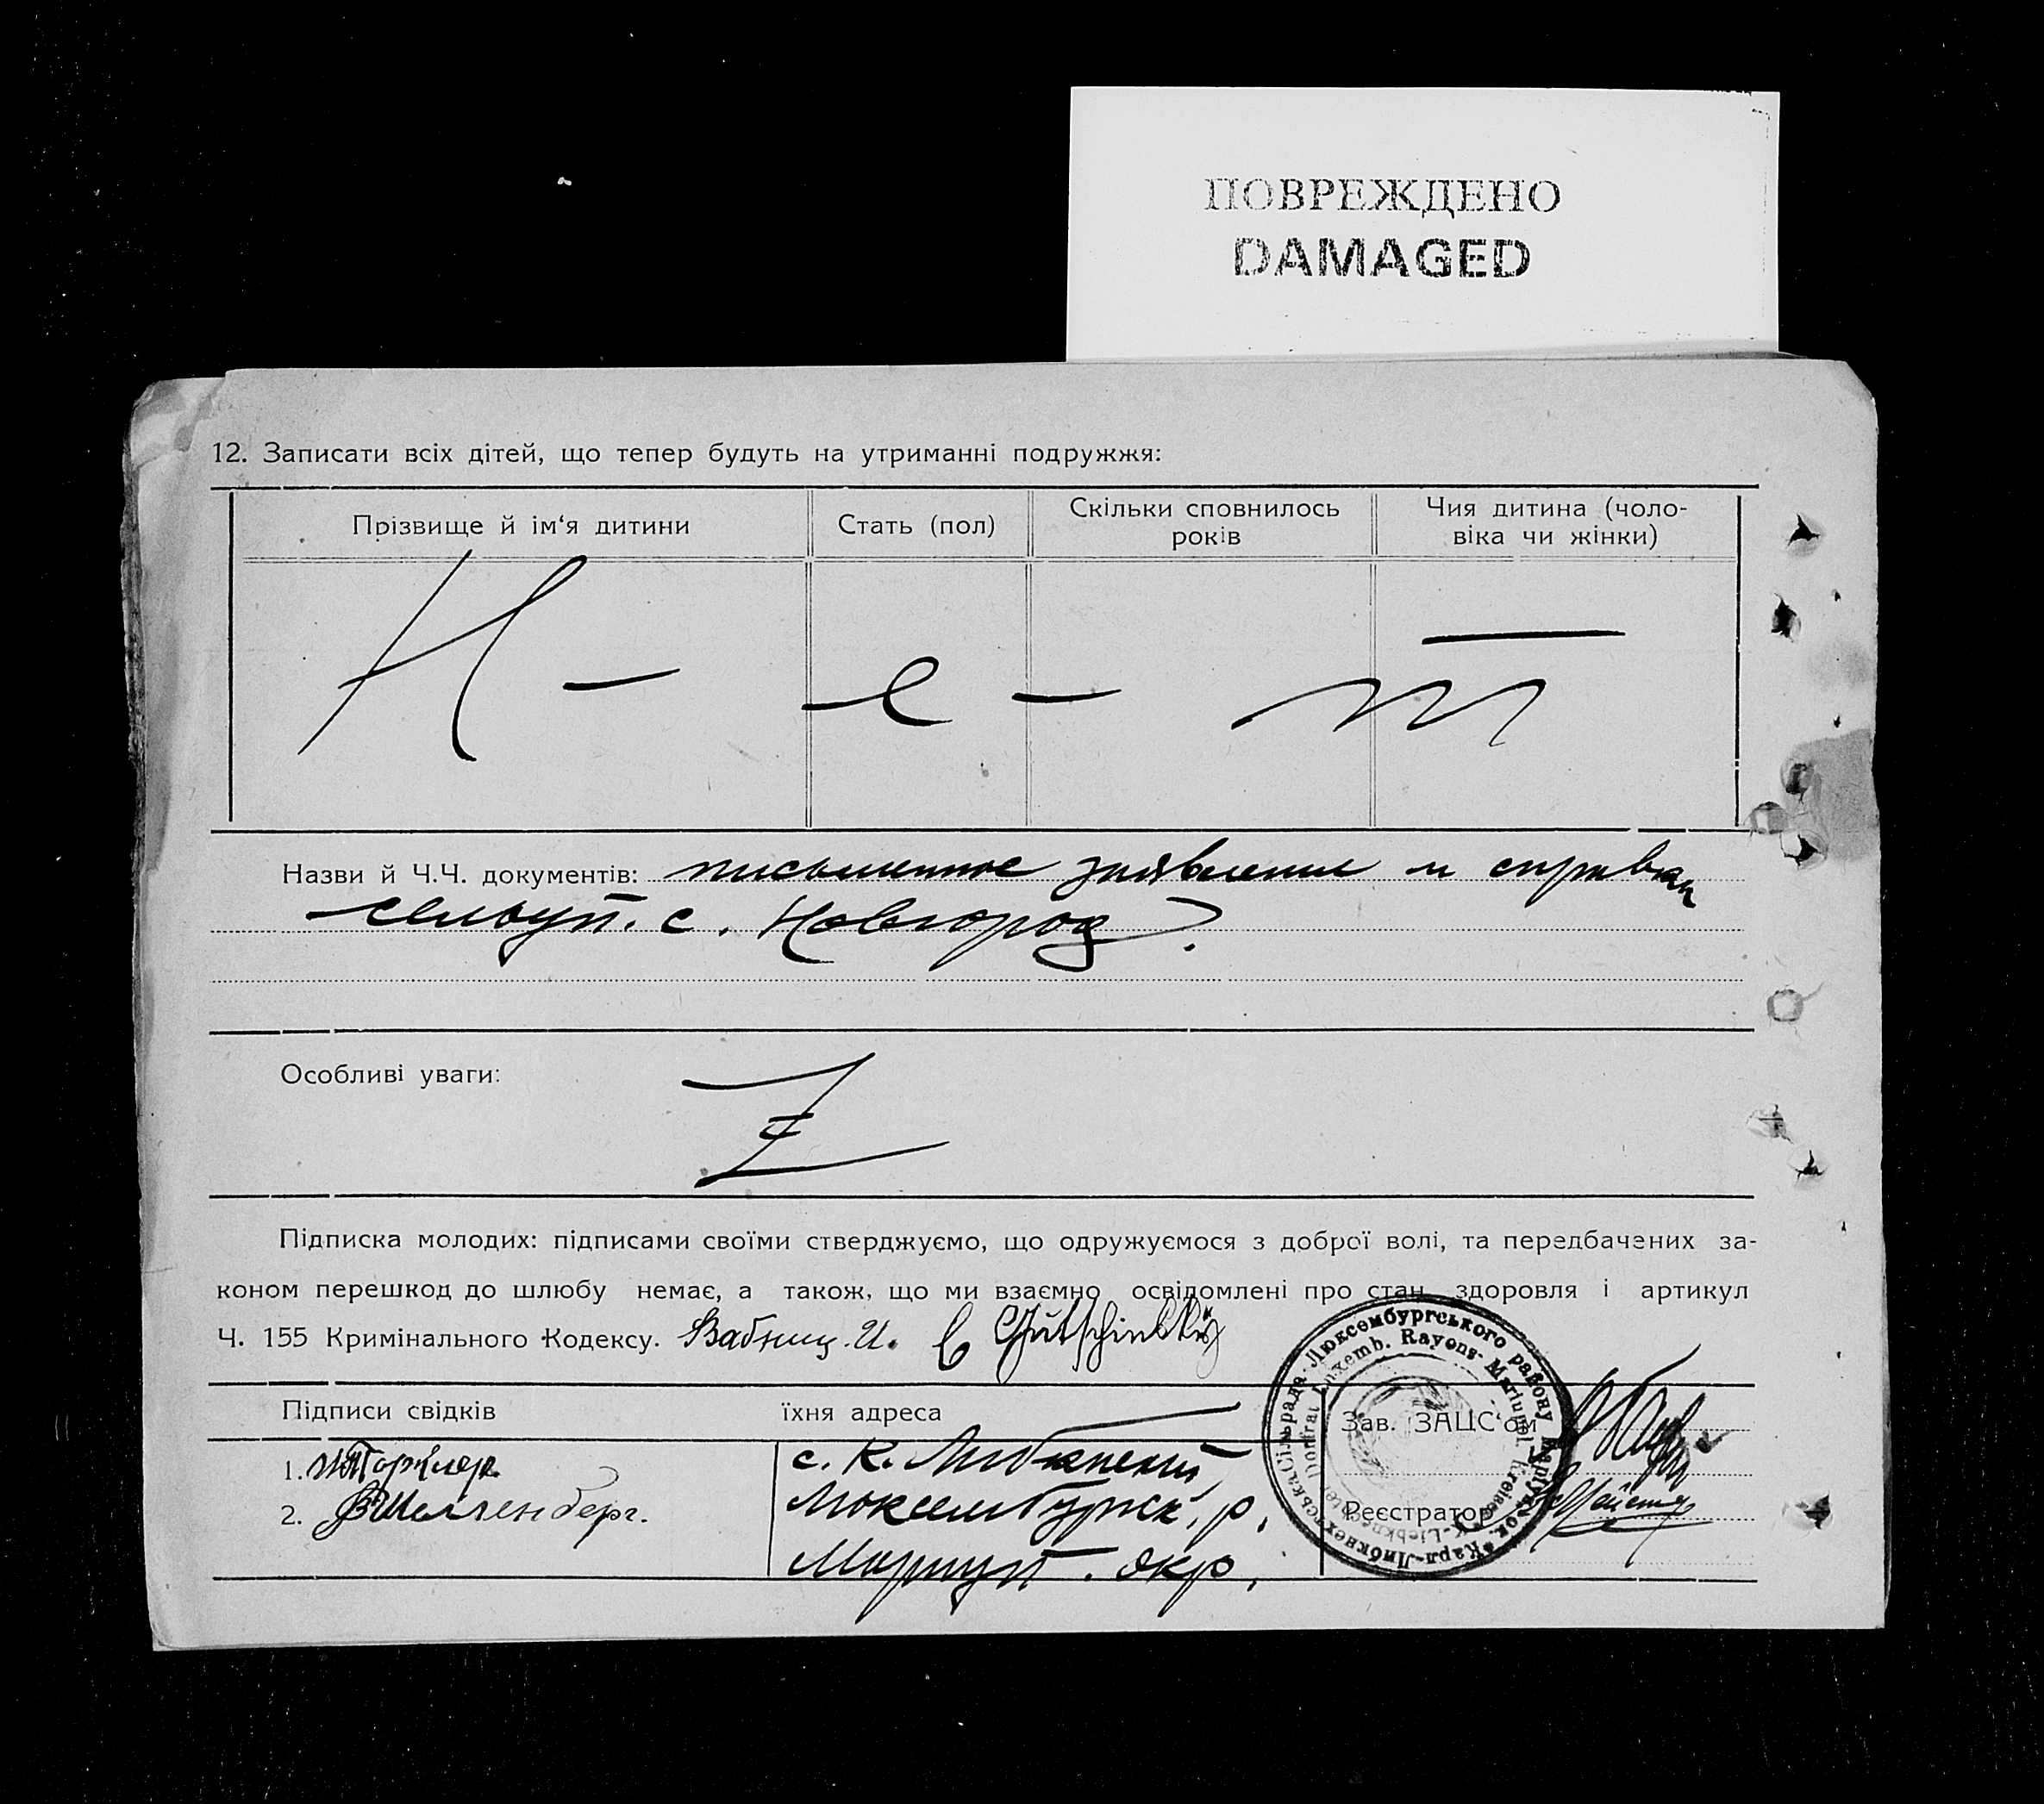 ПОВРЕЖДЕНО
DAMAGED
12. Записати всіх дітей, що тепер будуть на утриманні подружжя:
Прізвище й ім‘я дитини
Стать (пол)
Скільки сповнилось
років
Чия дитина (чоло-
віка чи жінки)
Н - е - т
Назви й Ч.Ч. документів: письменное заявление и справки
с. Новгород
Особливі уваги:
Z
Підписка молодих: підписами своїми стверджуємо, що одружуємося з доброї волі, та передбачених за-
коном перешкод до шлюбу немає, а також, що ми взаємно освідомлені про стан здоровля і артикул
Ч. 155 Кримінального Кодексу.
Підписи свідків
їхня адреса
Зав. ЗАЦС‘ом
1.
2. Шелленберг.
с. К. Либкнехт
Люксембургск. р.
Мариуп. окр.
Реєстратор
Люксембургського району Маріуп. ок. Карл-Лібкнехтська Сільрада
Luxemb. Rayons Mariupol Kreises K-Liebknechter Dorfrat